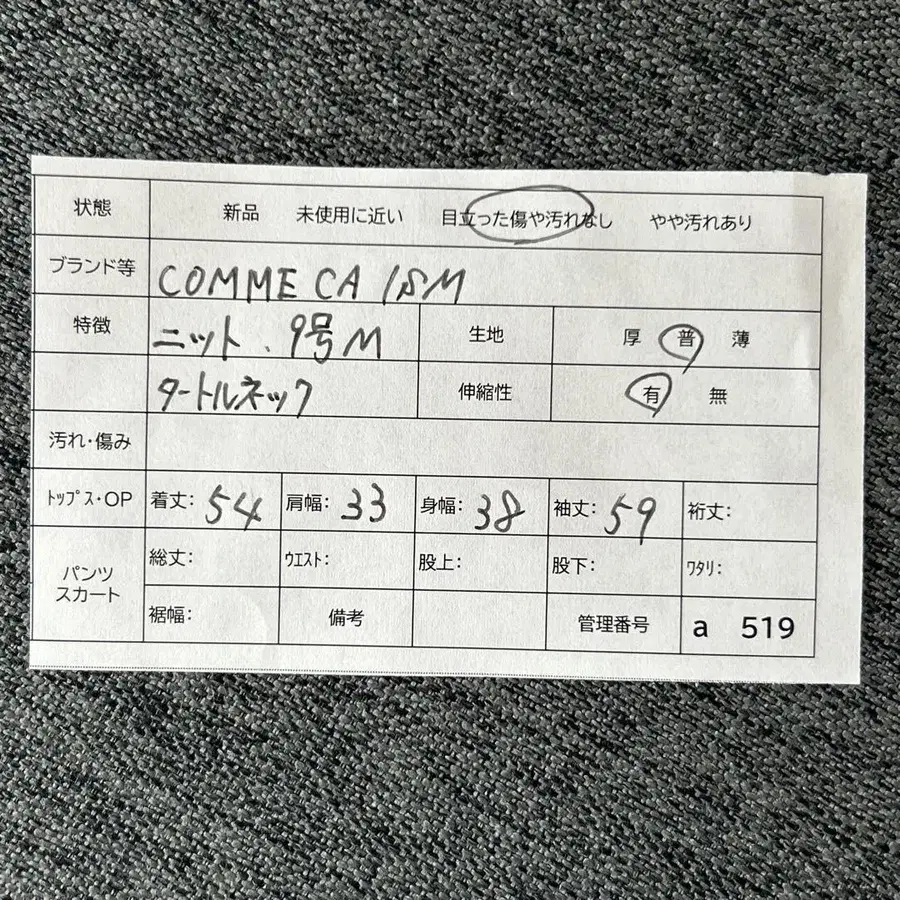 状態 新品 未使用に近い 目立った傷や汚れなし やや汚れあり
ブランド等 COMME CA ISM
特徴 ニット、9号M 生地 厚 普 薄
タートルネック 伸縮性 有 無
汚れ・傷み
トップス・OP 着丈: 54 肩幅: 33 身幅: 38 袖丈: 59 裄丈:
パンツ スカート 総丈: ウエスト: 股上: 股下: ワタリ:
裾幅: 備考 管理番号 a 519